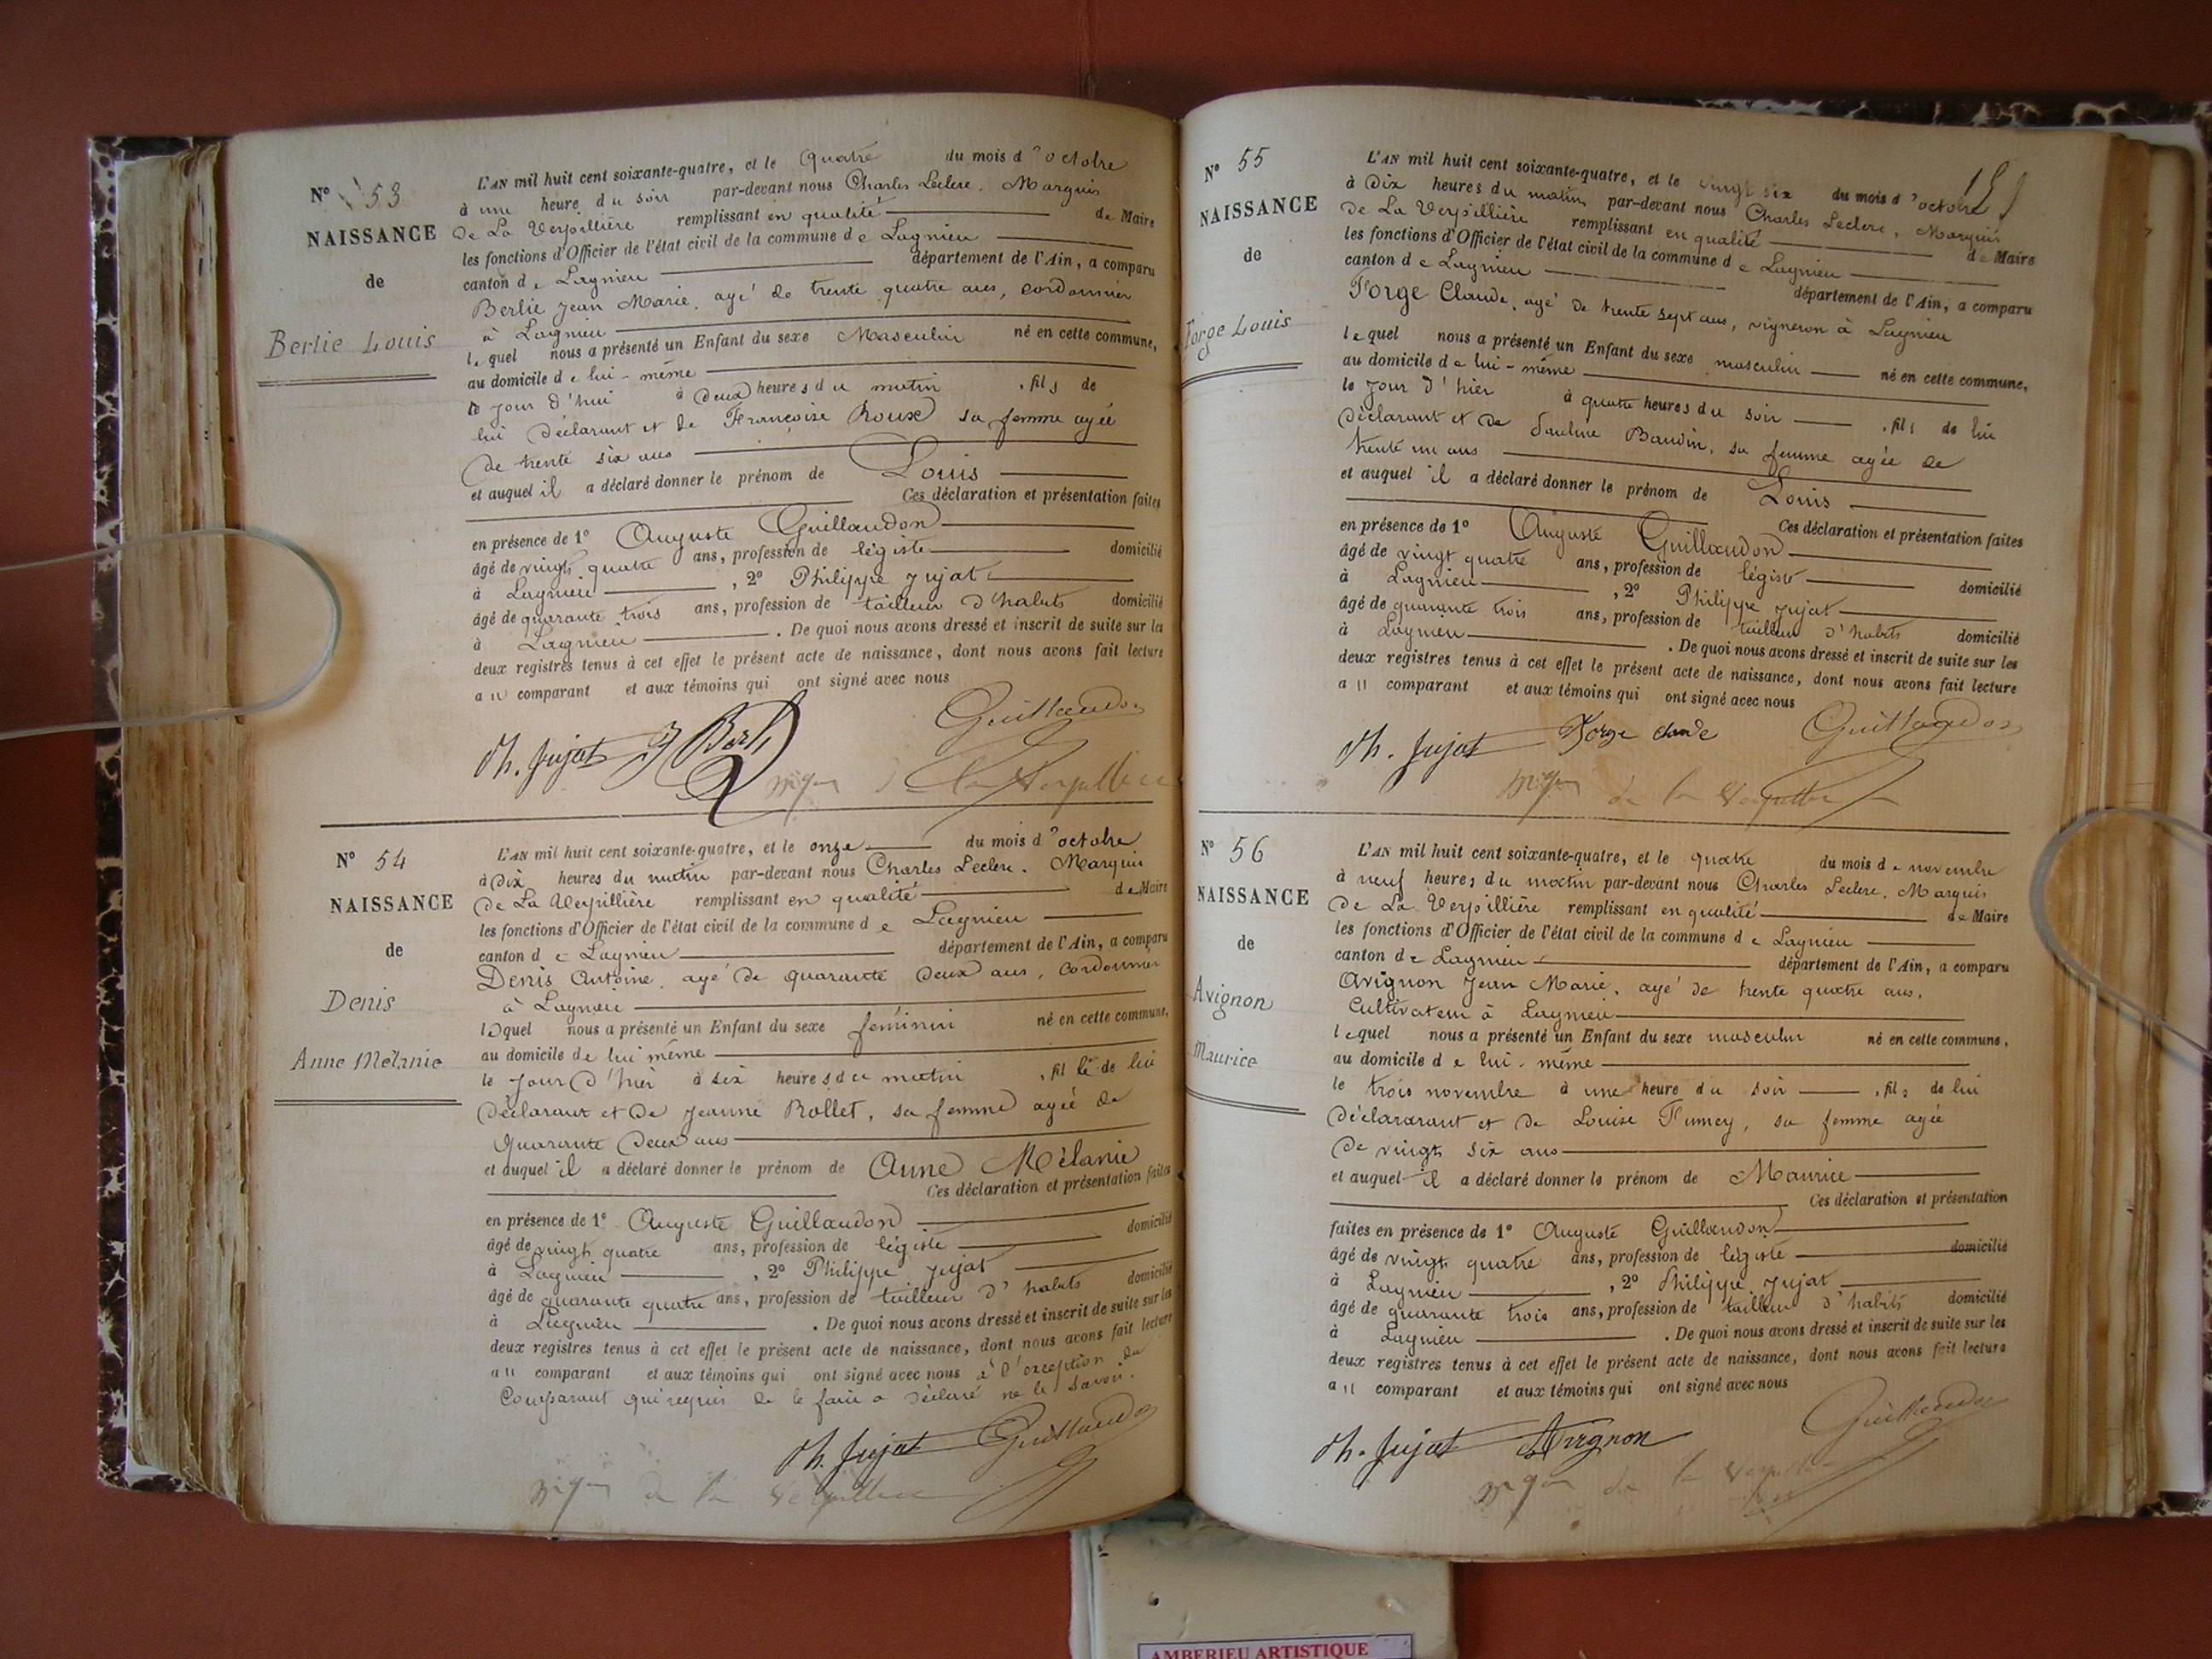 N° 53
NAISSANCE
de
Berlie Louis
L'AN mil huit cent soixante-quatre, et le Quatre du mois d'octobre
à une heure du soir par-devant nous Charles Leclerc, Marquis
De La Verpillière remplissant en qualité de Maire
les fonctions d'Officier de l'état civil de la commune de Lagnieu
canton de Lagnieu département de l'Ain, a comparu
Berlie Jean Marie, agé de trente quatre ans, cordonnier
à Lagnieu
lequel nous a présenté un Enfant du sexe Masculin né en cette commune,
au domicile de lui-même
le jour d'hui à Deux heures du matin, fils de
lui Déclarant et de Françoise Roux sa femme agée
de trente six ans
et auquel il a déclaré donner le prénom de Louis
Ces déclaration et présentation faites
en présence de 1° Auguste Guillaudon
âgé de vingt quatre ans, profession de légiste domicilié
à Lagnieu, 2° Philippe Jujat
âgé de quarante trois ans, profession de tailleur d'habits domicilié
à Lagnieu. De quoi nous avons dressé et inscrit de suite sur les
deux registres tenus à cet effet le présent acte de naissance, dont nous avons fait lecture
au comparant et aux témoins qui ont signé avec nous
Guillaudon
Ph. Jujat J Berli
mqis de la Verpillière
N° 54
NAISSANCE
de
Denis
Anne Mélanie
L'AN mil huit cent soixante-quatre, et le onze du mois d'octobre
à Dix heures du matin par-devant nous Charles Leclerc, Marquis
De La Verpillière remplissant en qualité de Maire
les fonctions d'Officier de l'état civil de la commune de Lagnieu
canton de Lagnieu département de l'Ain, a comparu
Denis Antoine, agé de quarante Deux ans, Cordonnier
à Lagnieu
lequel nous a présenté un Enfant du sexe féminin né en cette commune,
au domicile de lui même
le jour d'hier à six heures du matin, fille de lui
Déclarant et De Jeanne Rollet, sa femme agée de
Quarante Deux ans
et auquel il a déclaré donner le prénom de Anne Mélanie
Ces déclaration et présentation faites
en présence de 1° Auguste Guillaudon
âgé de vingt quatre ans, profession de légiste domicilié
à Lagnieu, 2° Philippe Jujat
âgé de quarante quatre ans, profession de tailleur d'habits domicilié
à Lagnieu. De quoi nous avons dressé et inscrit de suite sur les
deux registres tenus à cet effet le présent acte de naissance, dont nous avons fait lecture
au comparant et aux témoins qui ont signé avec nous à l'exception du
Comparant qui requis de le faire a déclaré ne le savoir.
Ph. Jujat Guillaudon
mqis de la Verpillière
N° 55
NAISSANCE
de
Forge Louis
L'AN mil huit cent soixante-quatre, et le vingt six du mois d'octobre
à Dix heures du matin par-devant nous Charles Leclerc, Marquis
De La Verpillière remplissant en qualité de Maire
les fonctions d'Officier de l'état civil de la commune de Lagnieu
canton de Lagnieu département de l'Ain, a comparu
Forge Claude, agé de trente sept ans, vigneron à Lagnieu
lequel nous a présenté un Enfant du sexe masculin né en cette commune,
au domicile de lui-même
le jour d'hier à quatre heures du soir, fils de lui
Déclarant et De Pauline Baudin, sa femme agée de
trente un ans
et auquel il a déclaré donner le prénom de Louis
Ces déclaration et présentation faites
en présence de 1° Auguste Guillaudon
âgé de vingt quatre ans, profession de légiste domicilié
à Lagnieu, 2° Philippe Jujat
âgé de quarante trois ans, profession de tailleur d'habits domicilié
à Lagnieu. De quoi nous avons dressé et inscrit de suite sur les
deux registres tenus à cet effet le présent acte de naissance, dont nous avons fait lecture
au comparant et aux témoins qui ont signé avec nous
Ph. Jujat Forge claude Guillaudon
mqis de la Verpillière
N° 56
NAISSANCE
de
Avignon
Maurice
L'AN mil huit cent soixante-quatre, et le quatre du mois de novembre
à neuf heures du matin par-devant nous Charles Leclerc, Marquis
De La Verpillière remplissant en qualité de Maire
les fonctions d'Officier de l'état civil de la commune de Lagnieu
canton de Lagnieu département de l'Ain, a comparu
Avignon Jean Marie, agé de trente quatre ans,
Cultivateur à Lagnieu
lequel nous a présenté un Enfant du sexe masculin né en cette commune,
au domicile de lui-même
le trois novembre à une heure du soir, fils de lui
Déclararant et de Louise Fumey, sa femme agée
De vingt six ans
et auquel il a déclaré donner le prénom de Maurice
Ces déclaration et présentation
faites en présence de 1° Auguste Guillaudon
âgé de vingt quatre ans, profession de légiste domicilié
à Lagnieu, 2° Philippe Jujat
âgé de quarante trois ans, profession de tailleur d'habits domicilié
à Lagnieu. De quoi nous avons dressé et inscrit de suite sur les
deux registres tenus à cet effet le présent acte de naissance, dont nous avons fait lecture
au comparant et aux témoins qui ont signé avec nous
Guillaudon
Ph. Jujat Avignon
mqis de la Verpillière
AMBERIEU ARTISTIQUE